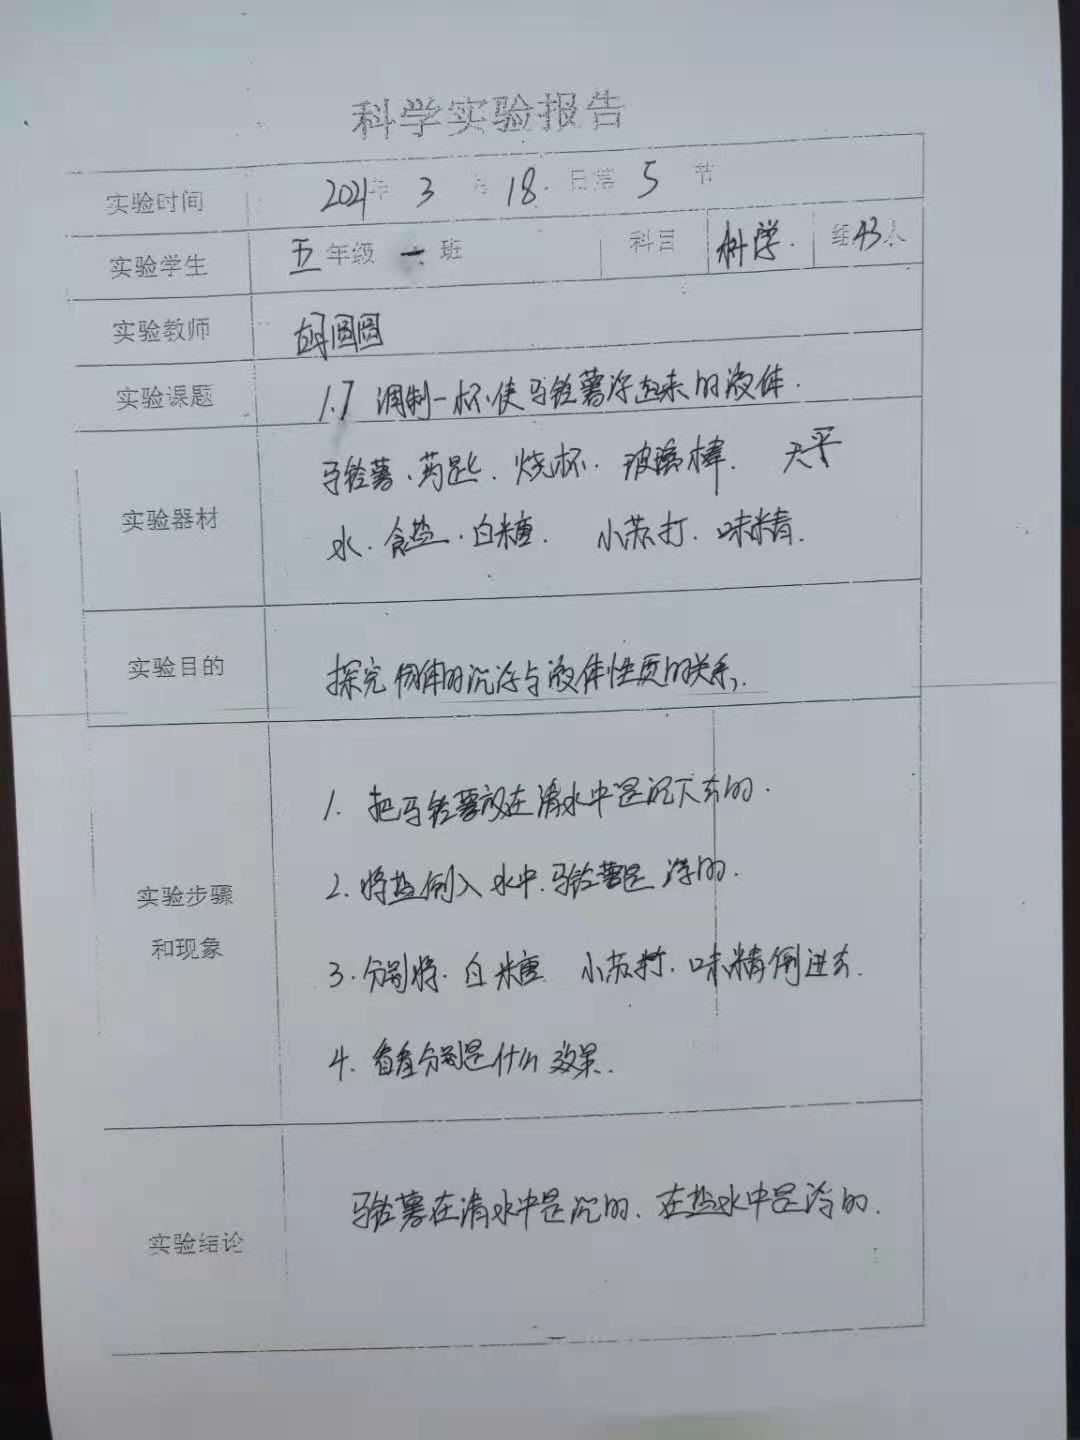 科学实验报告
实验时间 2021年 3 月 18 日第 5 节
实验学生 五年级 一 班 科目 科学. 组43人
实验教师 胡圆圆
实验课题 1.7 调制一杯使马铃薯浮起来的液体.
马铃薯、药匙、烧杯. 玻璃棒. 天平
实验器材
水、食盐、白糖. 小苏打、味精.
实验目的 探究物体的沉浮与液体性质的关系.
1. 把马铃薯放在清水中是沉下去的.
2. 将盐倒入水中.马铃薯是浮的.
实验步骤
和现象
3. 分别将.白糖 小苏打.味精倒进去.
4. 看看分别是什么效果.
马铃薯在清水中是沉的、在盐水中是浮的.
实验结论